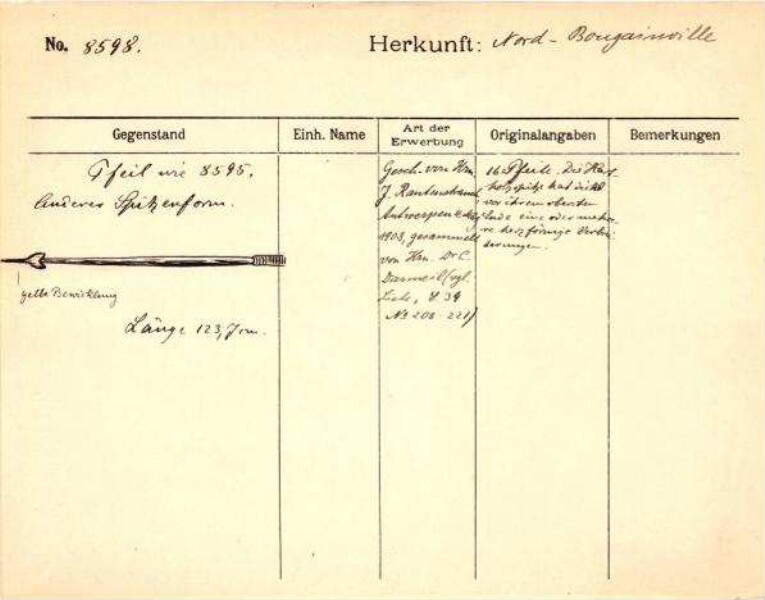 No. 8598.
Herkunft: Nord-Bougainville
Gegenstand
Einh. Name
Art der
Erwerbung
Originalangaben
Bemerkungen
Pfeil wie 8595.
Anderes Spitzenform.
gelbe Bewicklung
Länge 123,7 cm.
Gesch. von Hrn.
J. Rautenstrauch
Antwerpen
1903, gesammelt
von Hrn. Dr C.
(vgl.
Liste, S 34
No 208-221)
16 Pfeile. Die Hart-
holzspitze hat dicht
vor ihrem obersten
Ende eine oder mehre-
re herzförmige